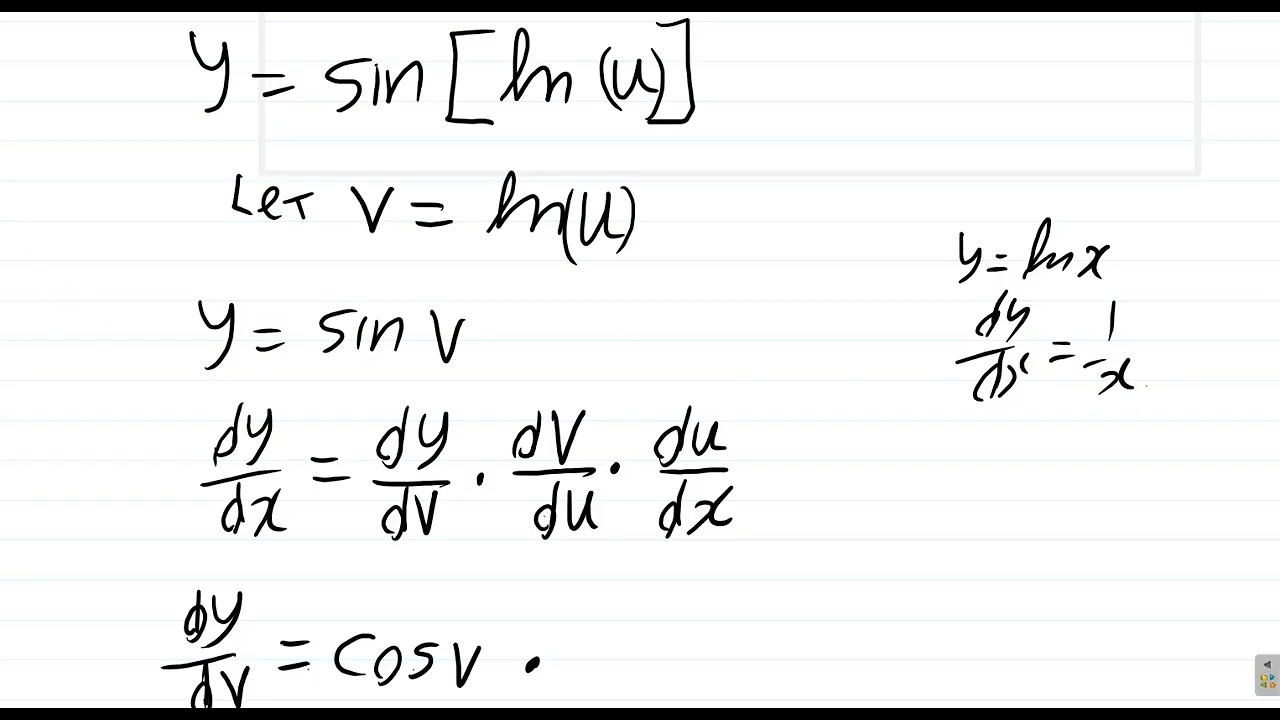 y = sin [ln (u)]
Let v = ln(u)
y = sin v
dy/dx = dy/dv · dv/du · du/dx
dy/dv = cos v ·
y = ln x
dy/dx = 1/x